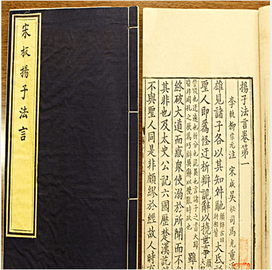 宋板揚子法言
揚子法言卷第一
李軌柳宗元注 宋咸吳祕司馬光重添
雄見諸子各以其知舛馳 大氐
聖人即爲怪迂析辯詭辭以撓世事
終破大道而惑衆使溺於所聞而不
其非也及太史公記六國歷楚漢
不與聖人同是非頗繆於經故人時